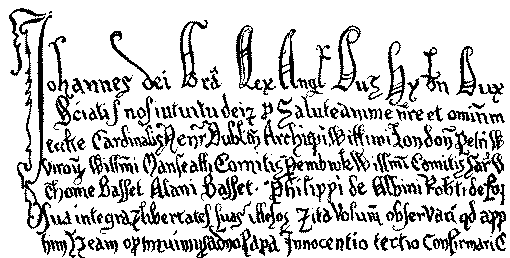 Johannes dei Grã Rex Angł Dns Hybn Dux
Sciatis nos intuitu dei z p Salute anime nre et omnium
Cardinalis Henr Dublin Archiepi Willmi London Petri W
Willmi Marescalli Comitis Pembrok Willmi Comitis Sar W
Thome Basset Alani Basset. Philippi de Albini Robti de
Sua integra z libertates suas illesas z ita volum observari qd app
eam optinuimus a dno Papa Innocentio tertio Confirmari